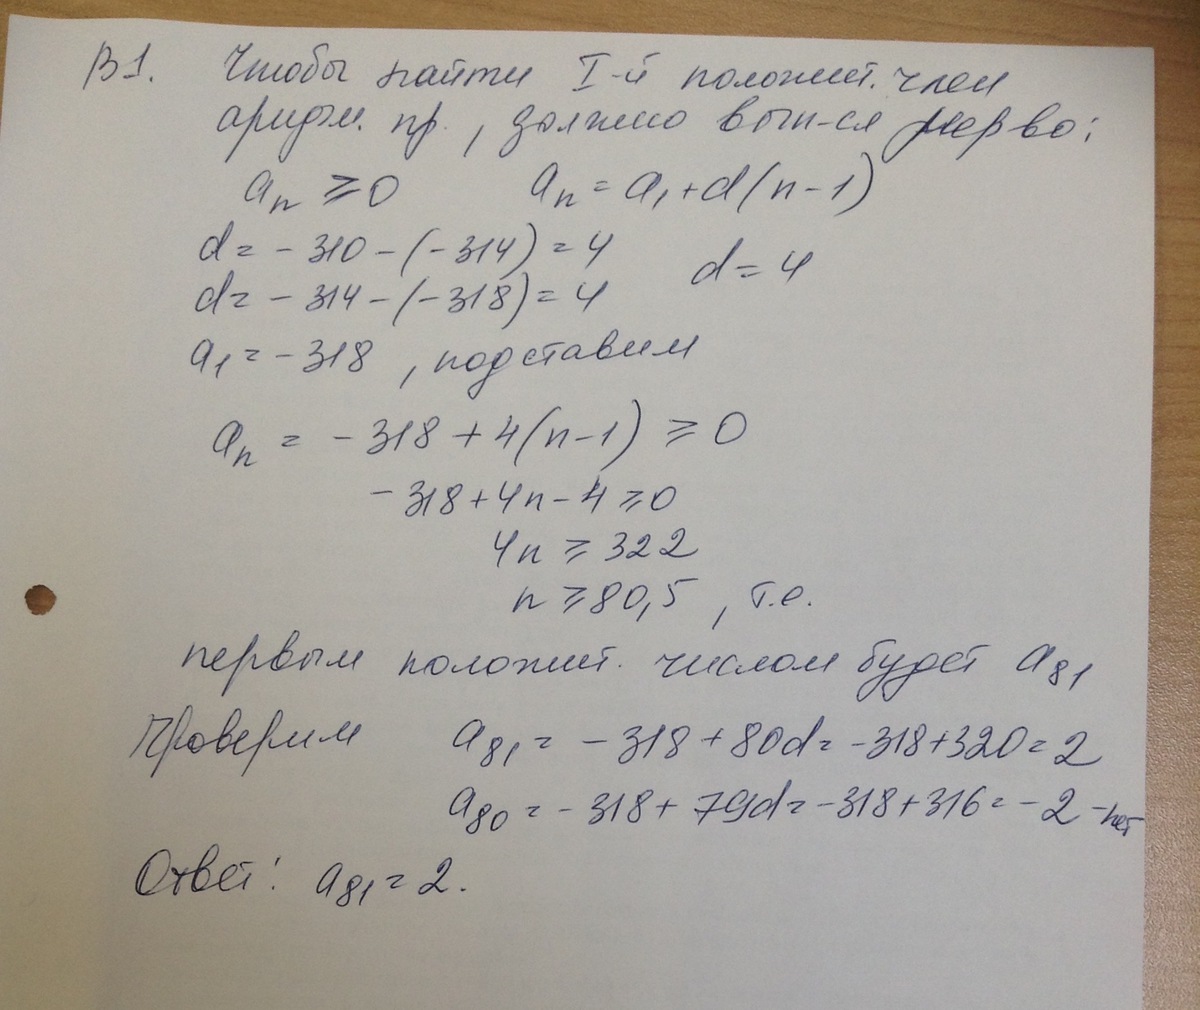 В1. Чтобы найти I-й положит. член
арифм. пр., должно вып-ся нер-во:
aₙ ⩾ 0 aₙ = a₁ + d(n-1)
d = -310 - (-314) = 4
d = 4
d = -314 - (-318) = 4
a₁ = -318, подставим
aₙ = -318 + 4(n-1) ⩾ 0
-318 + 4n - 4 ⩾ 0
4n ⩾ 322
n ⩾ 80,5, т.е.
первым положит. числом будет a₈₁
Проверим a₈₁ = -318 + 80d = -318 + 320 = 2
a₈₀ = -318 + 79d = -318 + 316 = -2 - нет
Ответ: a₈₁ = 2.